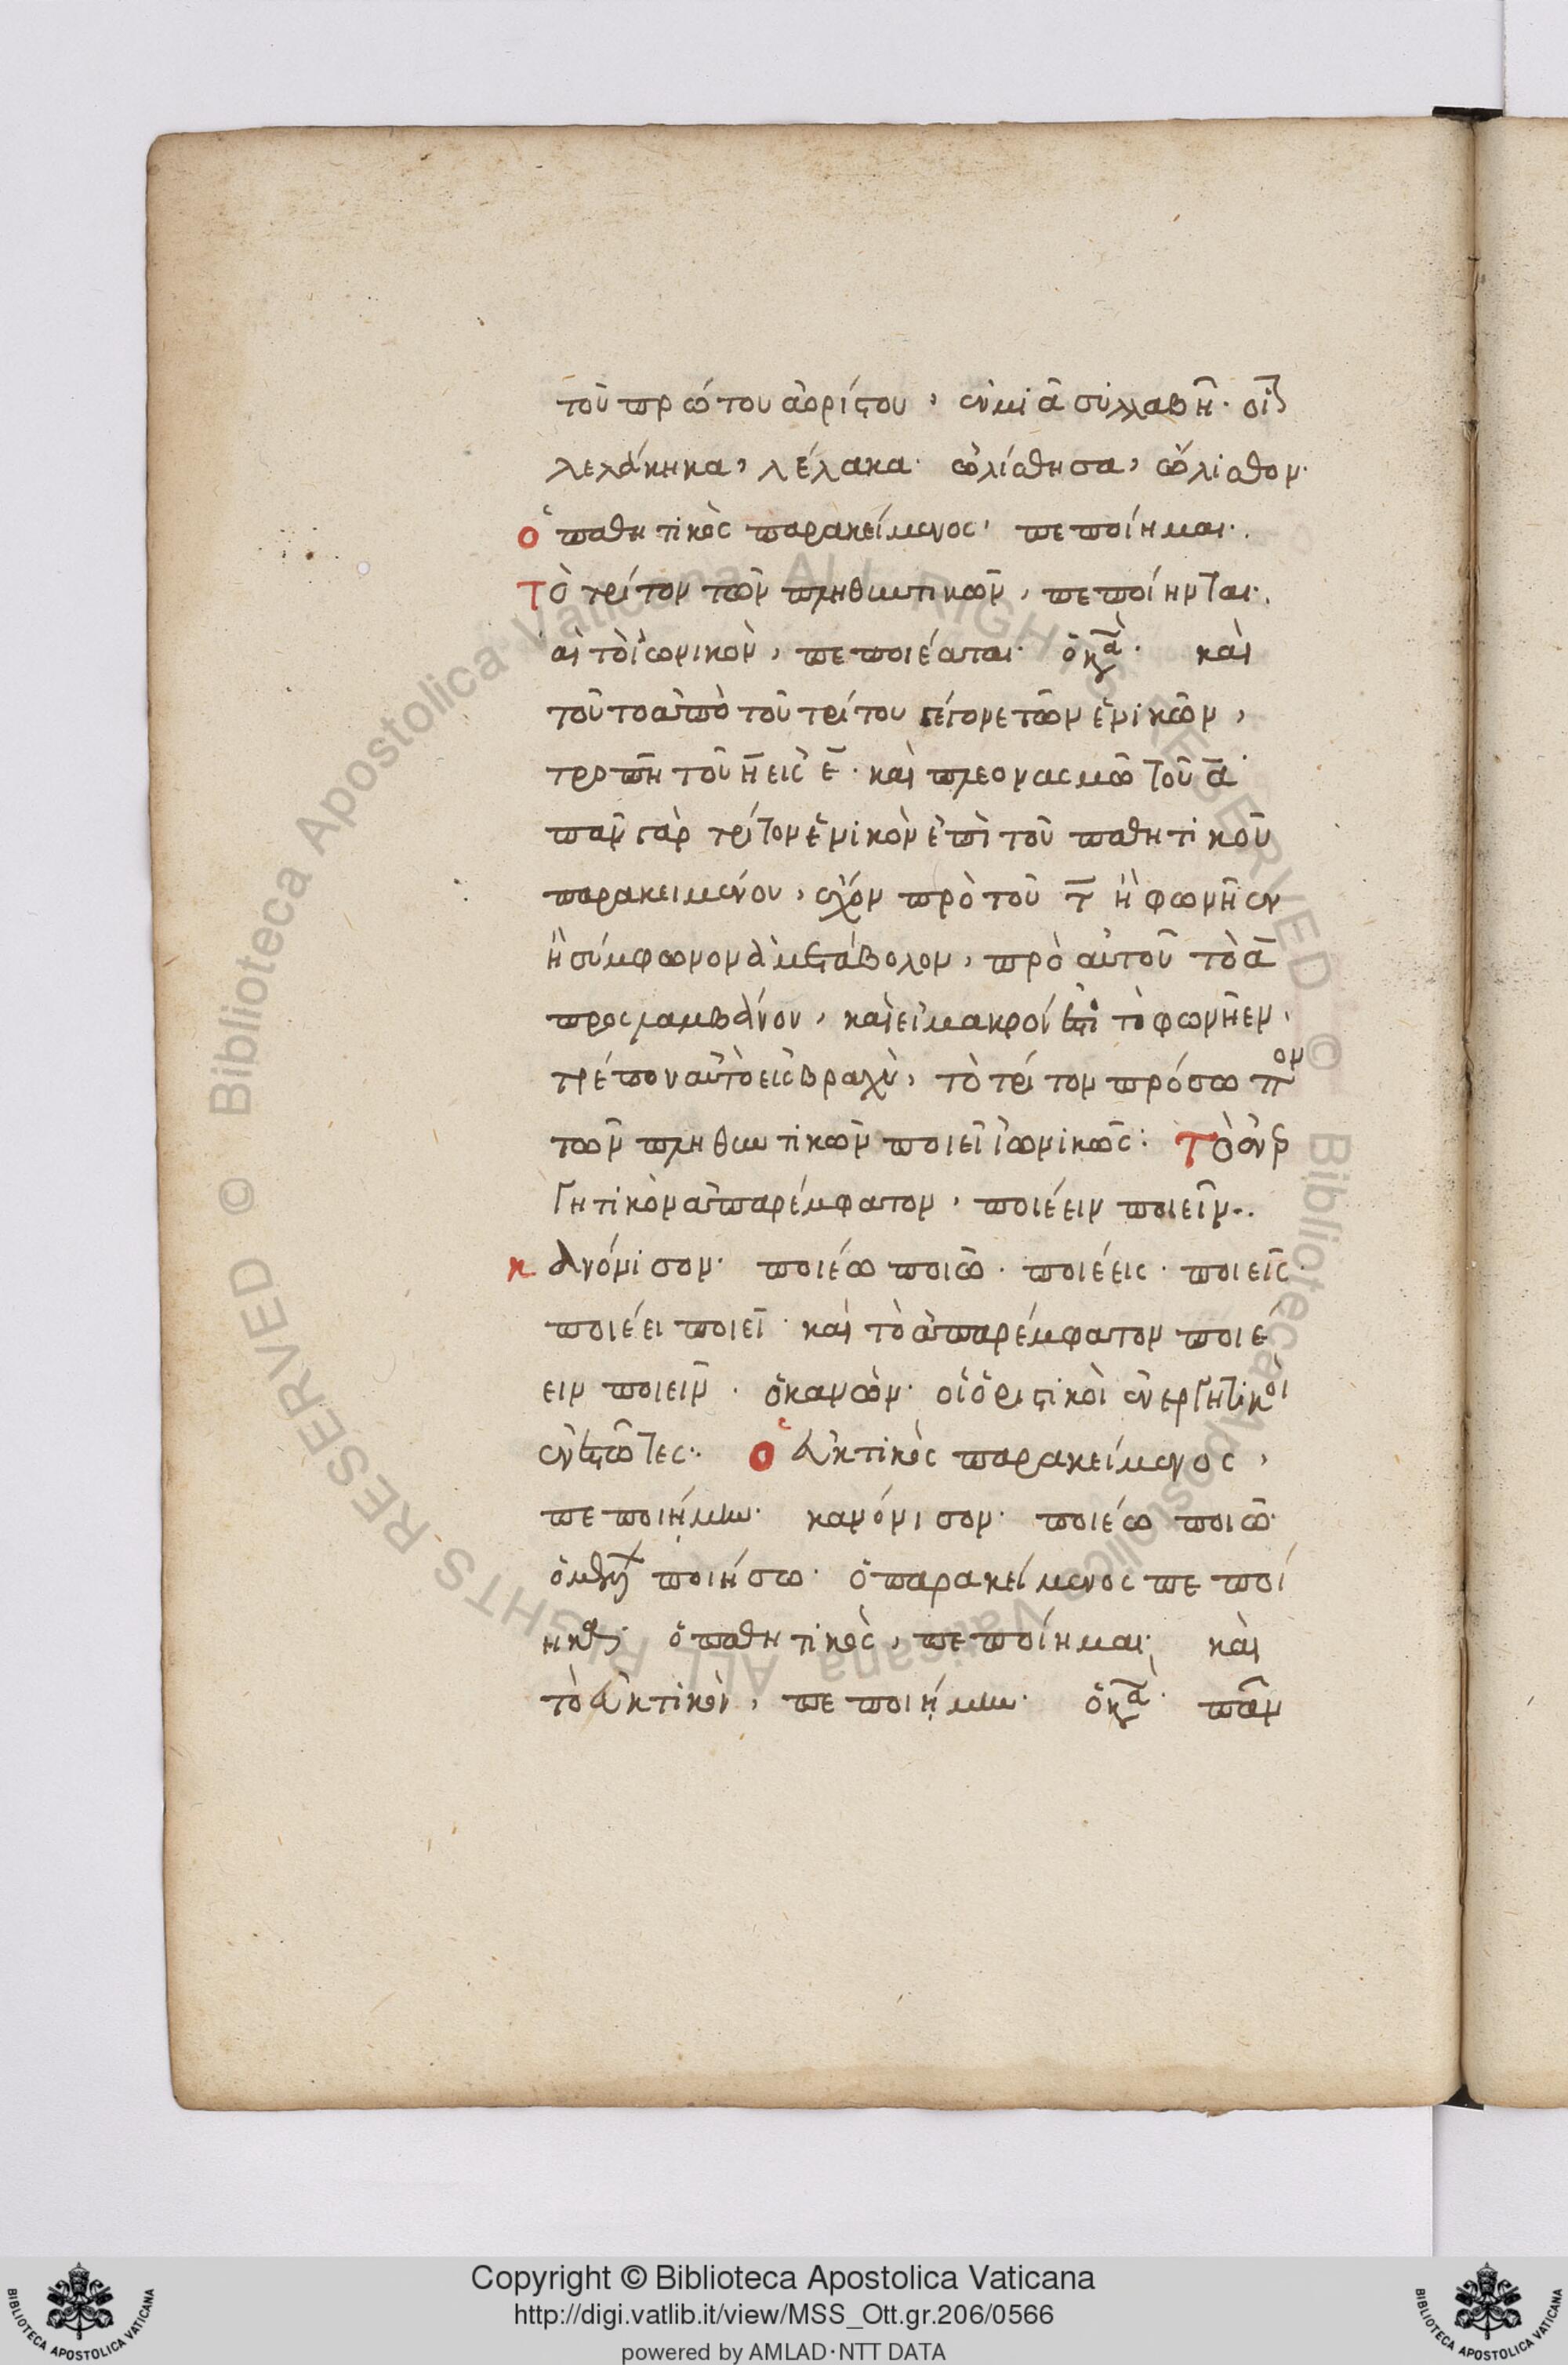 τοῦ πρώτου ἀορίστου, ἐν μιᾶ συλλαβῆ. οἷ
λελάκηκα, λέλακα. ὠλίσθησα, ὤλισθον.
ὁ παθητικὸς παρακείμενος, πεποίημαι.
Τὸ τρίτον τῶν πληθυντικῶν, πεποίηνται.
αι τὸ ἰωνικὸν, πεποιέαται. ὁ κα. καὶ
τοῦτο ἀπὸ τοῦ τρίτου γέγονε τῶν ἑνικῶν,
τροπῆ τοῦ η εἰς ε. καὶ πλεονασμῶ τοῦ α.
πᾶν γὰρ τρίτον ἑνικὸν ἐπὶ τοῦ παθητικοῦ
παρακειμένου, ἔχον πρὸ τοῦ τ ἢ φωνῆεν
ἢ σύμφωνον ἀμετάβολον, πρὸ αὐτοῦ τὸ α
προσλαμβάνον, καὶ εἰ μακρόν ἐστι τὸ φωνῆεν,
τρέπον αὐτὸ εἰς βραχὺ, τὸ τρίτον πρόσωπον
τῶν πληθυντικῶν ποιεῖ ἰωνικῶς: Τὸ ἐνερ
γητικὸν ἀπαρέμφατον, ποιέειν ποιεῖν.
κανόνισον. ποιέω ποιῶ. ποιέεις. ποιεῖς
ποιέει ποιεῖ. καὶ τὸ ἀπαρέμφατον ποιέ
ειν ποιεῖν. ὁ κανών. οἱ ὁριστικοὶ ἐνεργητικοὶ
ἐνεστῶτες. Ὁ εὐκτικὸς παρακείμενος,
πεποιῄμην. κανόνισον. ποιέω ποιῶ.
ὁ μέλλων ποιήσω. ὁ παρακείμενος πεποί
ηκα. ὁ παθητικὸς, πεποίημαι. καὶ
τὸ εὐκτικὸν, πεποιῄμην. ὁ κα. πᾶν
Copyright © Biblioteca Apostolica Vaticana
http://digi.vatlib.it/view/MSS_Ott.gr.206/0566
powered by AMLAD·NTT DATA
BIBLIOTECA APOSTOLICA VATICANA
BIBLIOTECA APOSTOLICA VATICANA
© Biblioteca Apostolica Vaticana ALL RIGHTS RESERVED
© Biblioteca Apostolica Vaticana ALL RIGHTS RESERVED